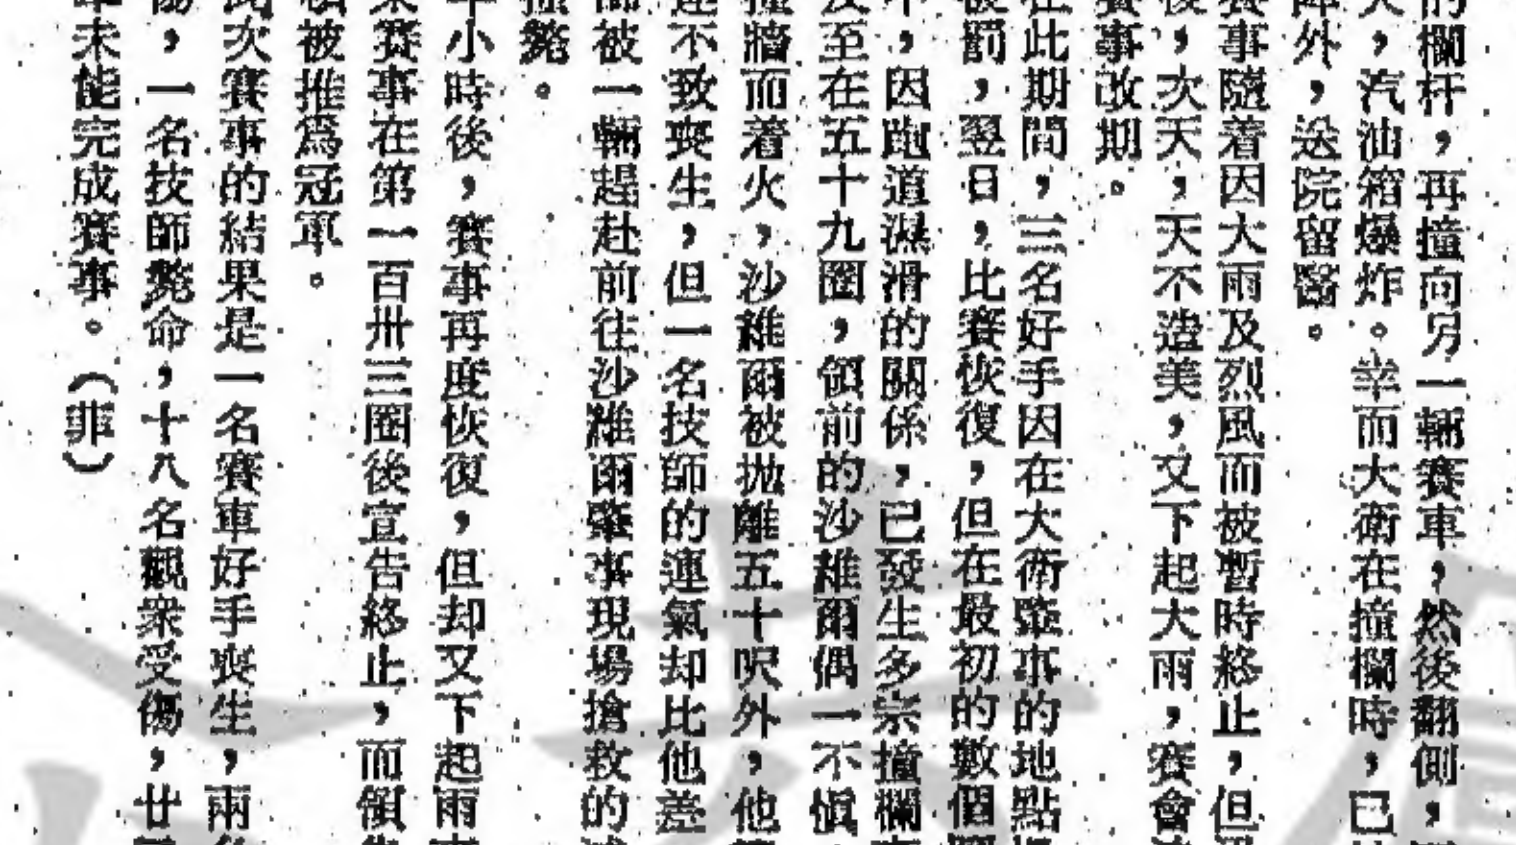 的欄杆，再撞向另一輛賽車，然後翻側，
，汽油箱爆炸。幸而大衛在撞欄時，已
陣外，送院留醫。
賽事隨着因大雨及烈風而被暫時終止，但
後，次天，天不造美，又下起大雨，賽會
賽事改期。
在此期間，三名好手因在大衛肇事的地點
被罰，翌日，比賽恢復，但在最初的數個圈
，因跑道濕滑的關係，已發生多宗撞欄
及至在五十九圈，領前的沙維爾偶一不慎，
撞牆而着火，沙維爾被拋離五十呎外，他
不致喪生，但一名技師的運氣却比他差
師被一輛趕赴前往沙維爾肇事現場搶救的
撞斃。
小時後，賽事再度恢復，但却又下起雨
賽事在第一百卅三圈後宣告終止，而領
被推爲冠軍。
此次賽事的結果是一名賽車好手喪生，兩
傷，一名技師斃命，十八名觀衆受傷，廿
未能完成賽事。（菲）